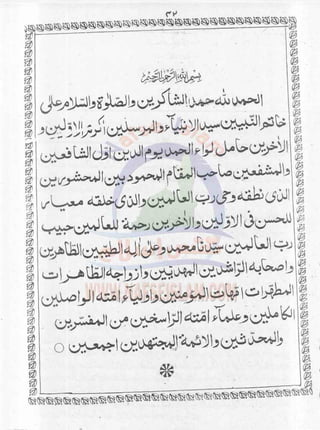 ٣٢
بسم الله الرحمن الرحيم
الحمد لله حمد الشاكرين والصلوة والسلام على
خاتم النبيين سيد الانبياء والمرسلين اكرم الاولين و
الاخرين حامل لواء الحمد يوم الدين اول الشافعين
والمشفعين صاحب المقام المحمود بين المحشورين
الذى نطقه وحى رب العالمين والذى خلقه معيار
للحسن فى الاولين والاخرين رحمة للعالمين حبيب
رب العالمين سيدنا محمد وعلى اله الطيبين الطاهرين
واصحابه الراشدين المهديين وازواجه الطاهرات
المطهرات امهات المؤمنين واولياء امته الواصلين
الكاملين وعلماء امته الراسخين من المفسرين
والمحدثين والائمة المجتهدين اجمعين ○